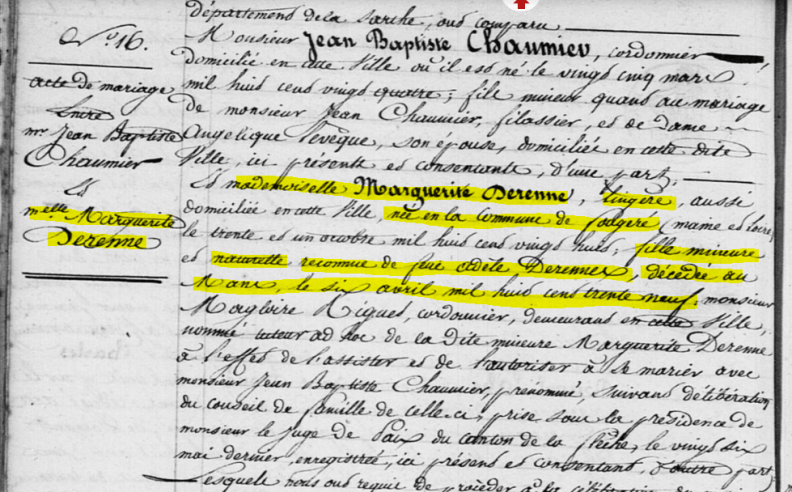 département de la Sarthe, ont comparu
N.o 16.
Monsieur Jean Baptiste Chaumier, cordonnier
domicilié en cette Ville où il est né le vingt cinq mars
mil huit cent vingt quatre; fils mineur quant au mariage
de monsieur Jean Chaumier, filassier, et de dame
Angelique Levêque, son épouse, domiciliés en cette dite
Ville, ici présents et consentants, d'une part,
acte de mariage
Entre
mr Jean Baptiste
Chaumier
Et
melle Marguerite
Derenne
Et mademoiselle Marguerite Derenne, lingère, aussi
domiciliée en cette Ville, née en la commune de fougeré (maine et loire)
le trente et un octobre mil huit cent vingt huit, fille mineure
et naturelle reconnue de feue adèle Derennes, décédée au
Mans, le six avril mil huit cent trente neuf. monsieur
Magloire Rigues, cordonnier, demeurant en cette Ville,
nommé tuteur ad hoc de la dite mineure Marguerite Derenne
à l'effet de l'assister et de l'autoriser à se marier avec
monsieur Jean Baptiste Chaumier, prénommé, suivant délibération
du conseil de famille de celle ci prise sous la présidence de
monsieur le Juge de Paix du canton de la flèche, le vingt six
mai dernier, enregistrée, ici présent et consentant, d'autre part,
Lesquels nous ont requis de procéder à la célébration du